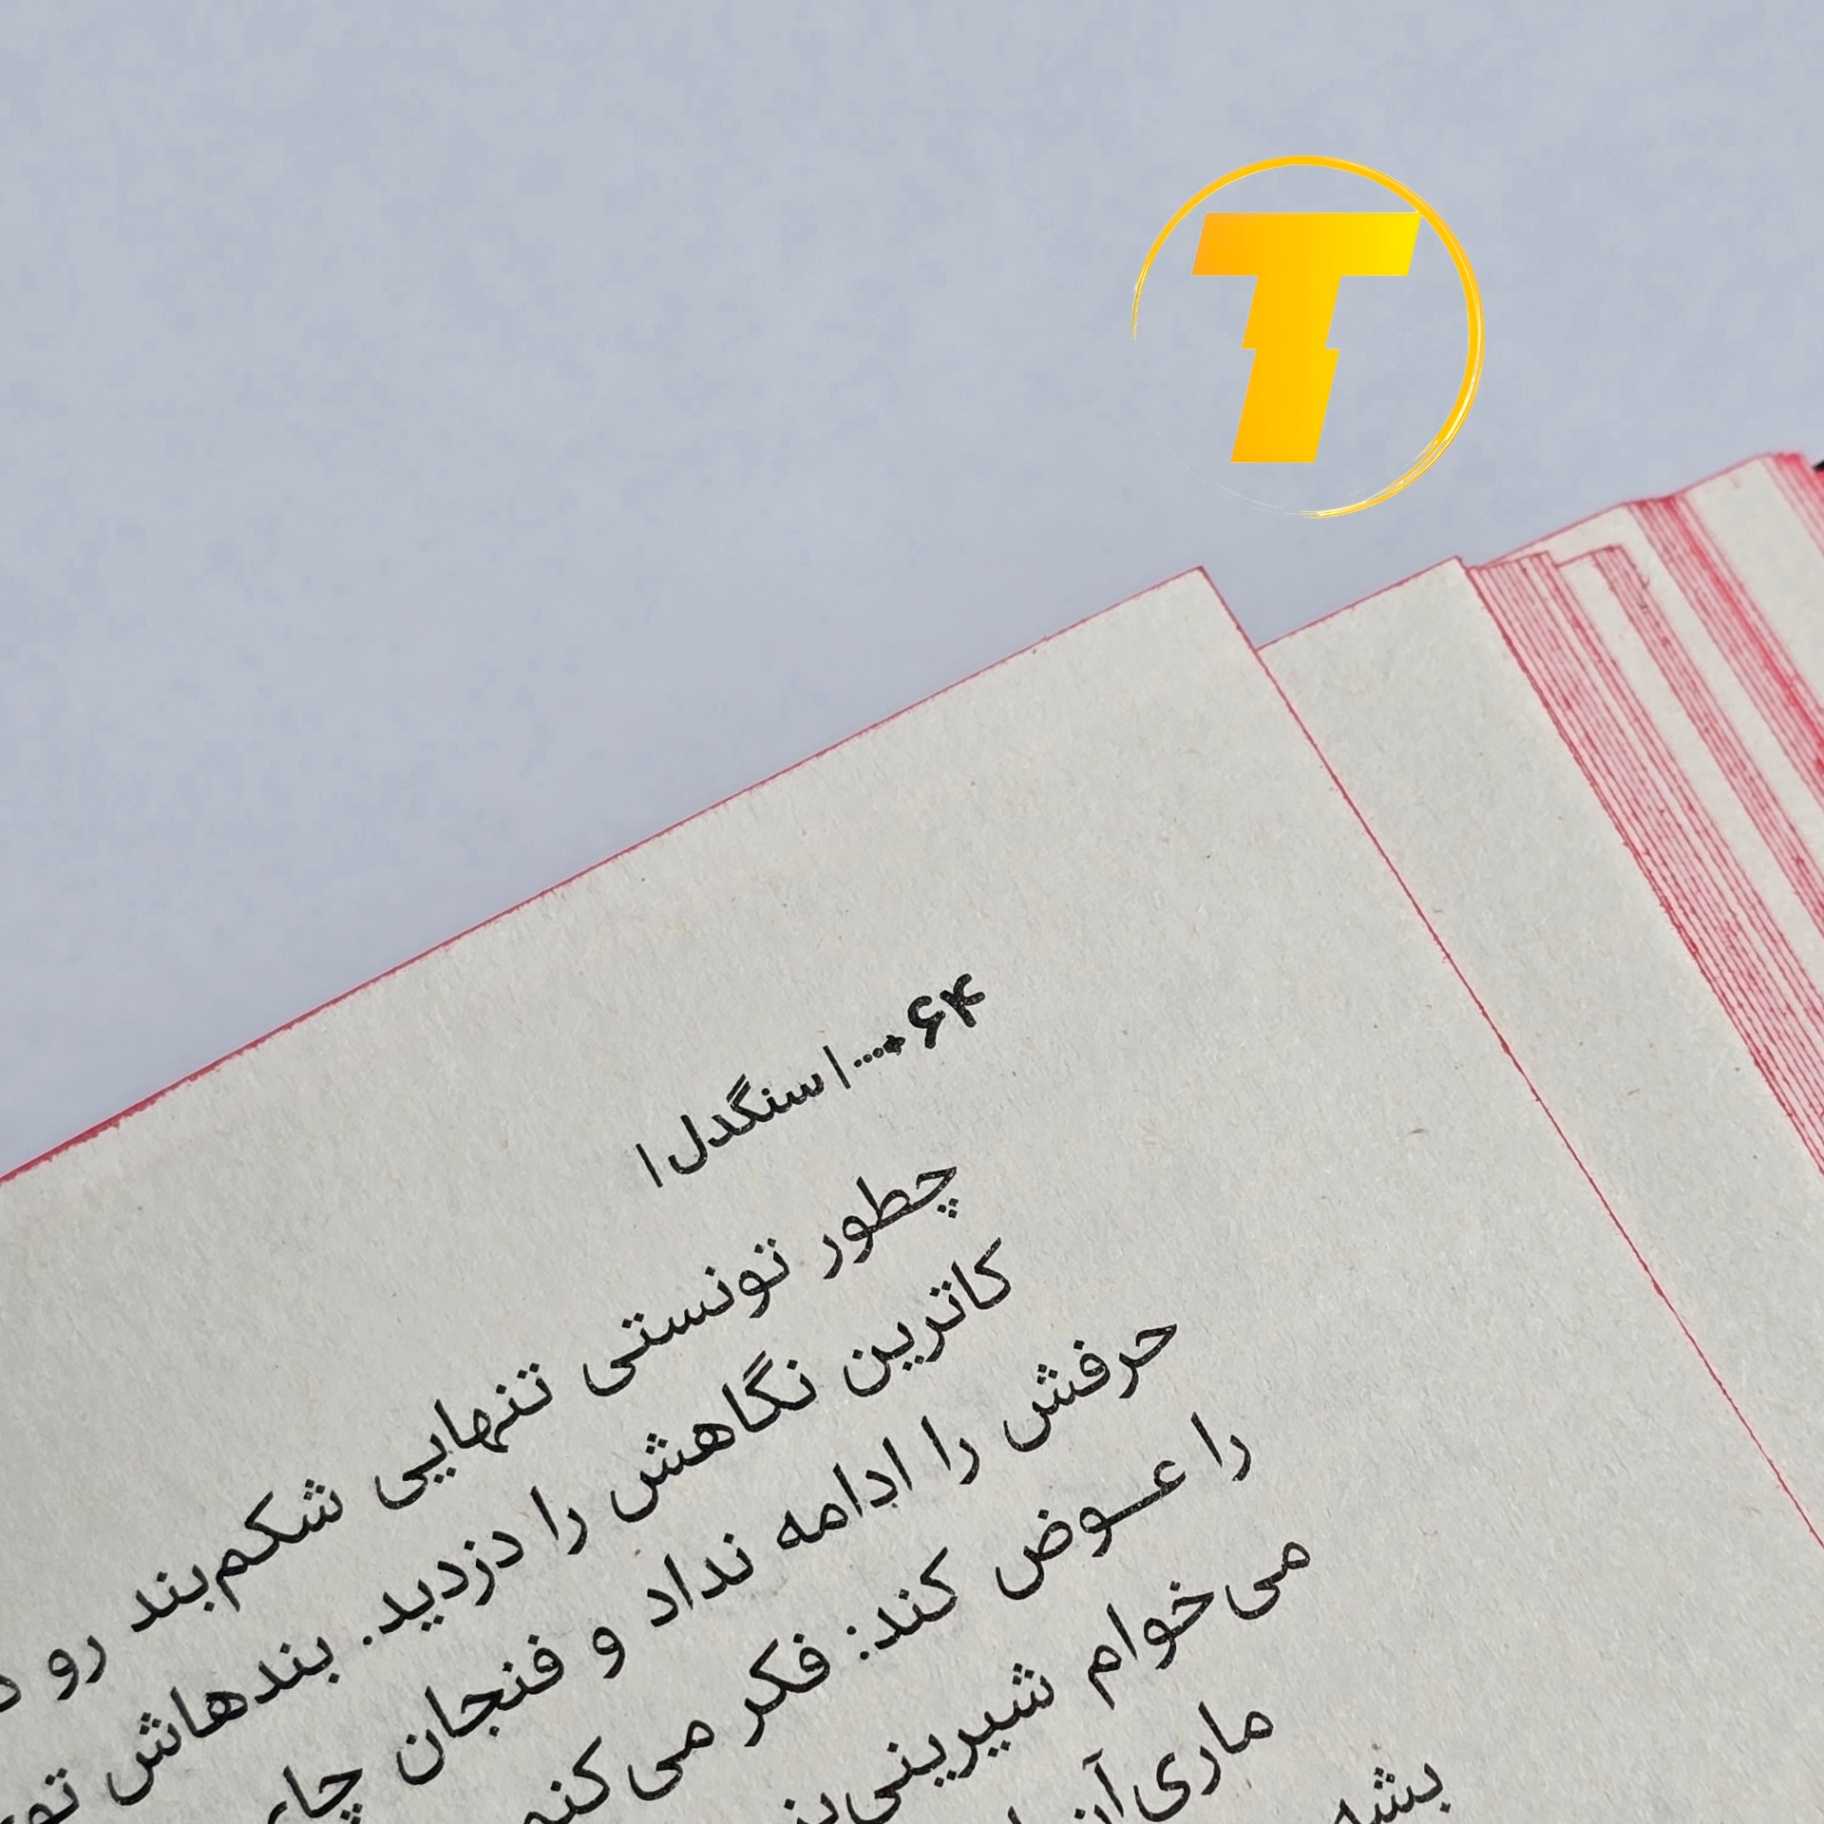 T
۶۴ ....• | سنگدل |
چطور تونستی تنهایی شکم‌بند رو
کاترین نگاهش را دزدید. بندهاش
حرفش را ادامه نداد و فنجان
را عوض کند: فکر می‌کنم
می‌خوام شیرینی‌پز
ماری‌آن
بشه